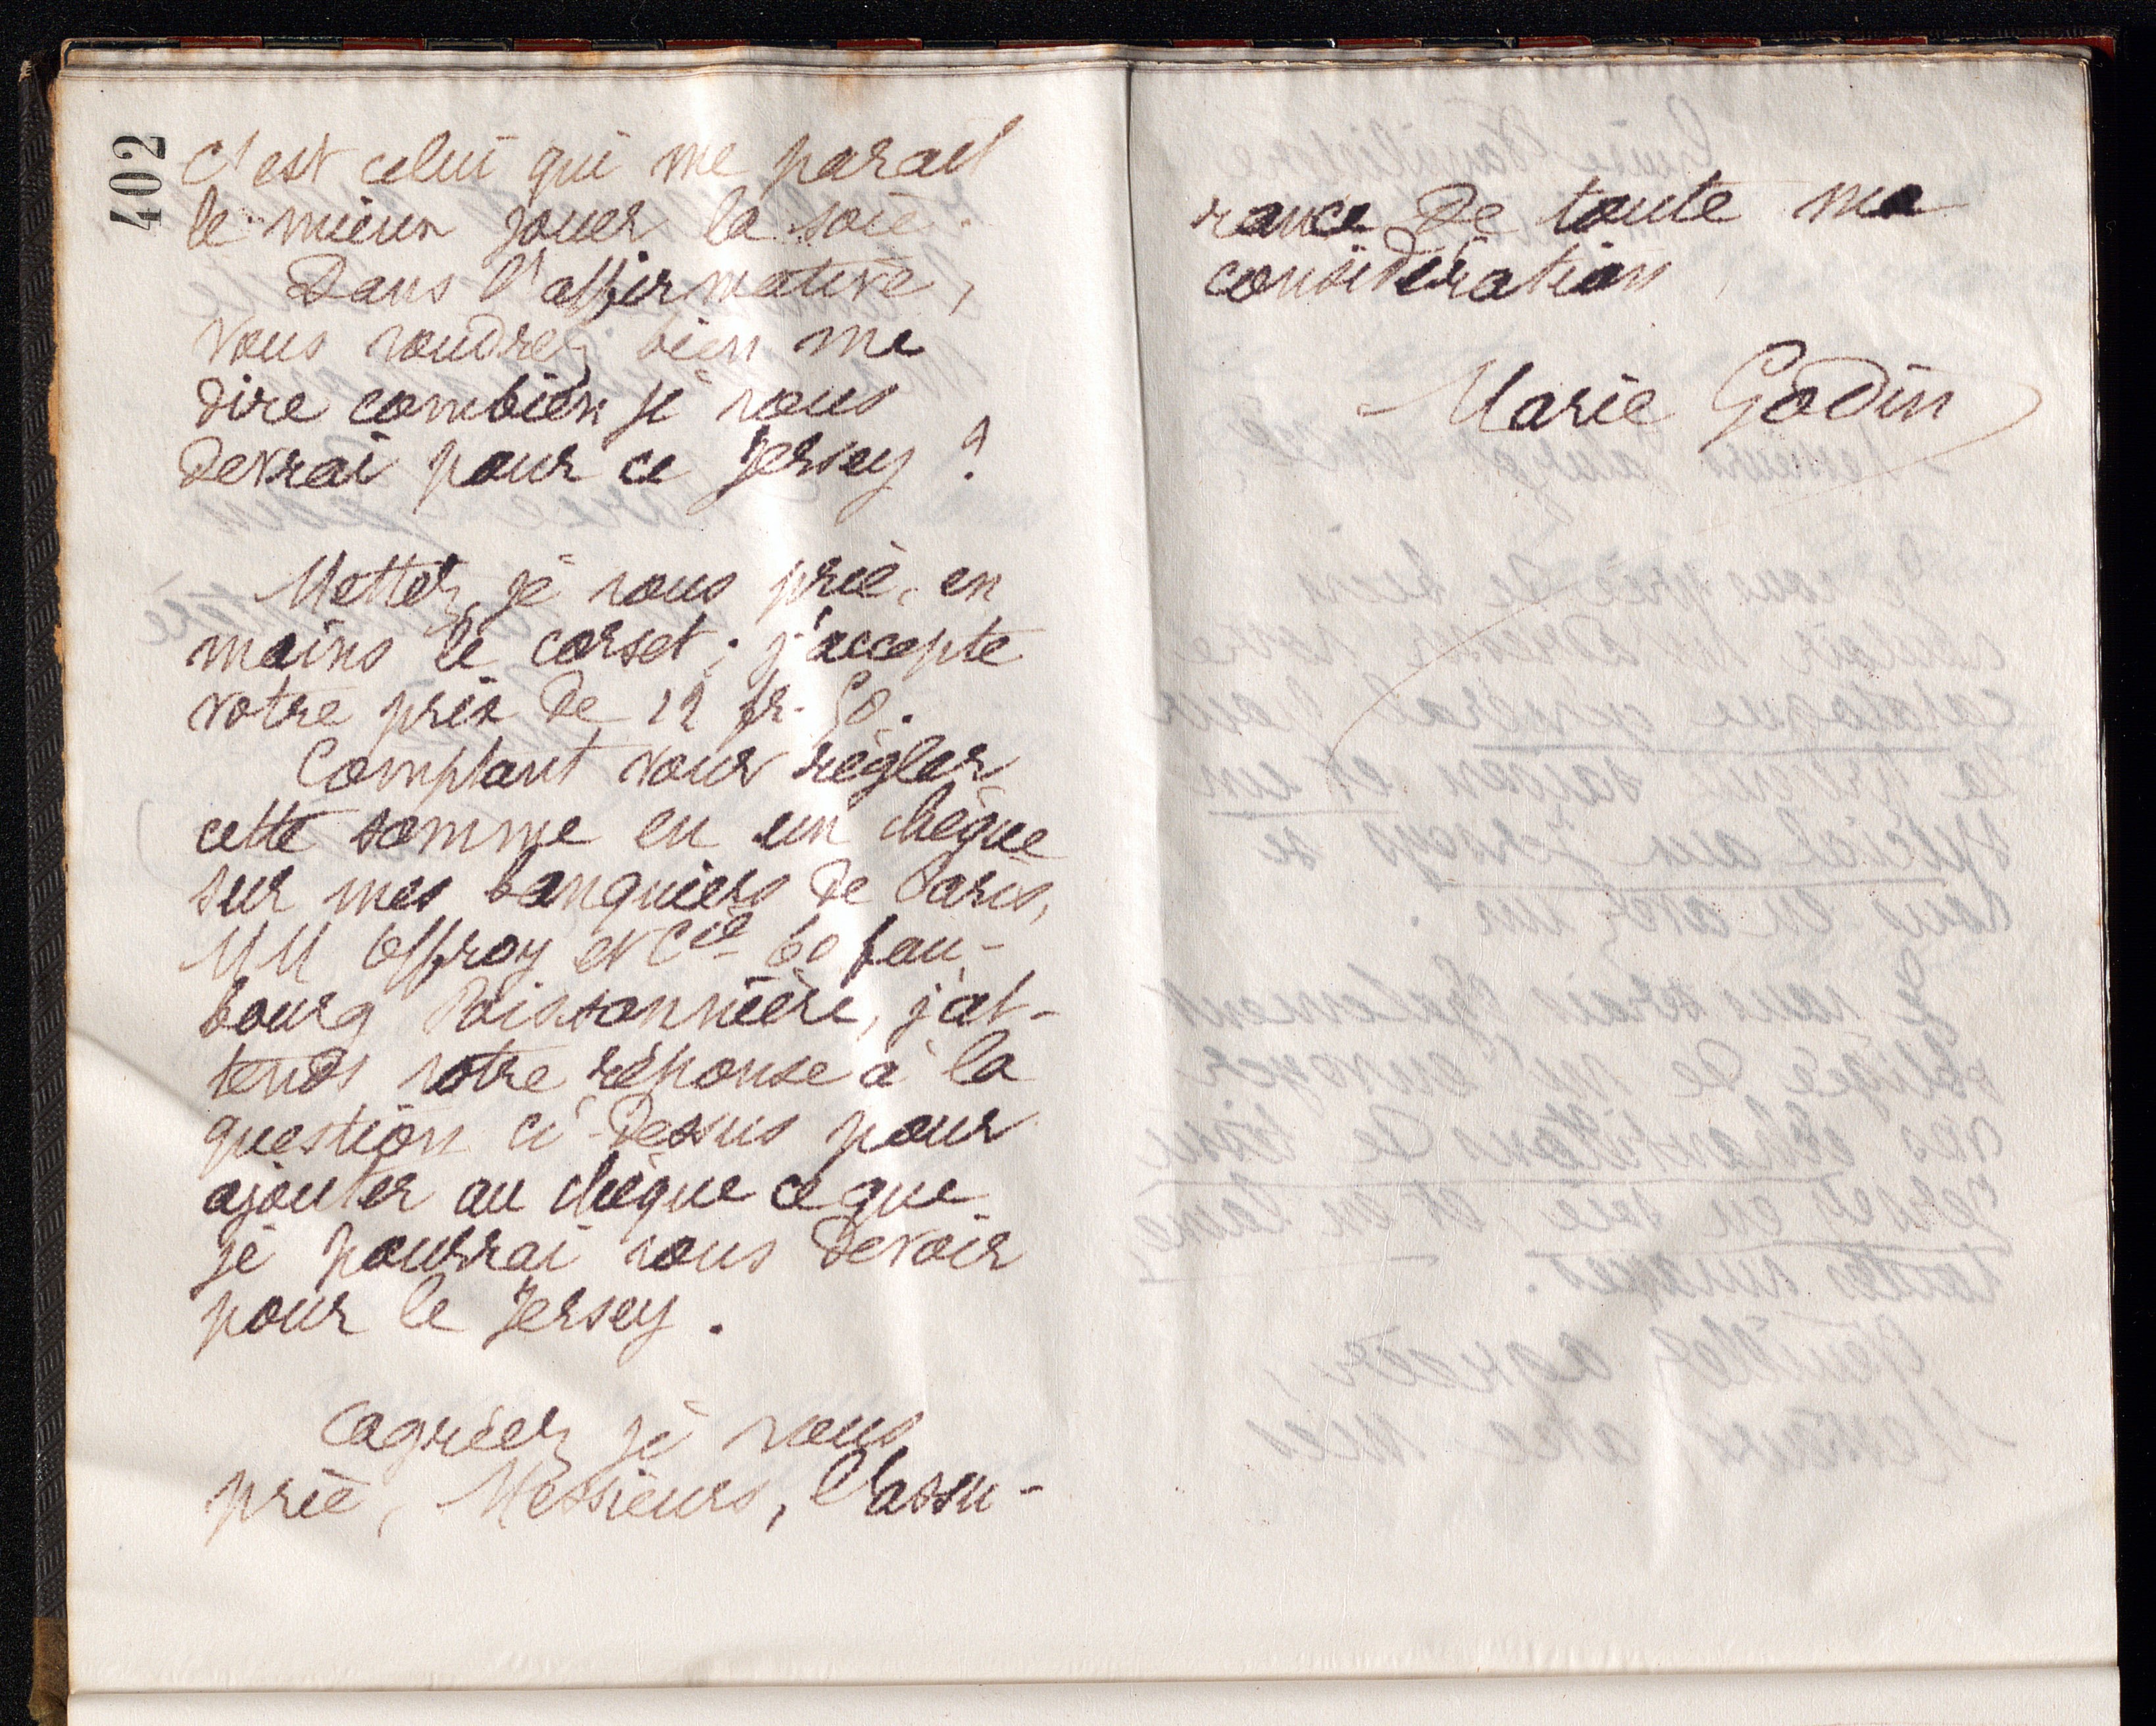 402
c'est celui qui me parait
le mieux jouer la soie.
Dans l'affirmative,
vous voudrez bien me
dire combien je vous
devrai pour ce Jersey ?
Mettez, je vous prie, en
mains le corset ; j'accepte
votre prix de 12 fr. 50.
Comptant vous régler
cette somme en un chèque
sur mes banquiers de Paris,
MM Offroy et Cie 60 fau-
bourg Poissonnière, j'at-
tends votre réponse à la
question ci-dessus pour
ajouter au chèque ce que
je pourrai vous devoir
pour le Jersey.
Agréez je vous
prie, Messieurs, l'assu-
rance de toute ma
considération
Marie Godin